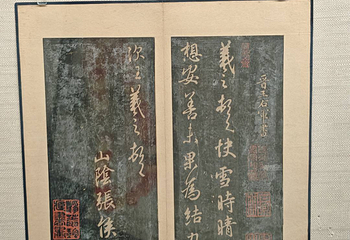 晉王右軍書
羲之頓首快雪時晴
想安善未果為結力
次王羲之頓首
山陰張侯